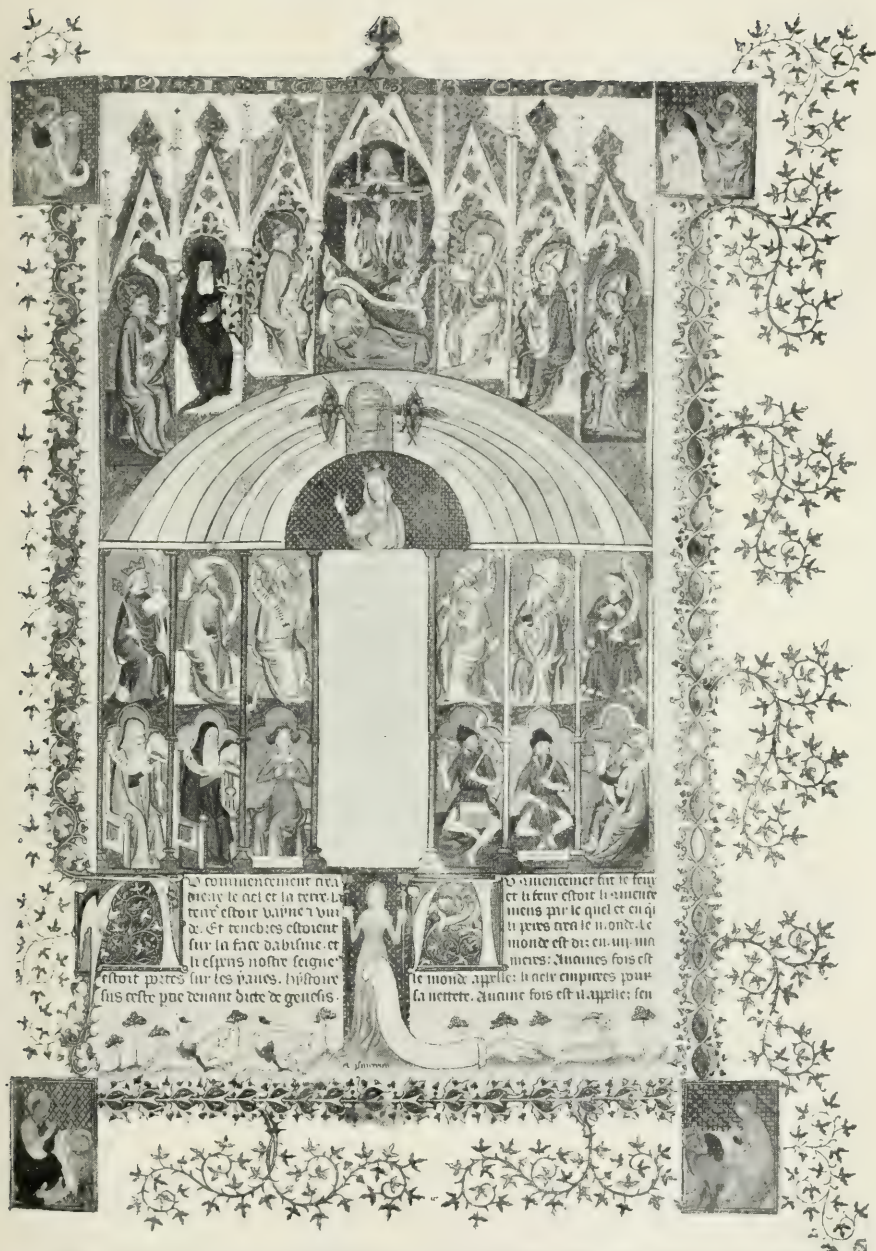 U commencement crea
dieu le ciel et la terre. La
terre estoit vayne & vui
de. Et tenebres estoient
sur la face dabisme. et
li espris nostre seigne
estoit portes sur les yaues. hystoire
sus ceste ptie deuant dicte de genesis.
U cōmencemēt fut le feux
et li feux estoit li cōmence
mens par le quel et en qi
li peres crea le mōnde. Le
monde est dit en .iiij. ma
nieres: Aucunes fois est
le monde appelle: li cielz empirees pour
sa nettete. Aucune fois est il appelle: sen